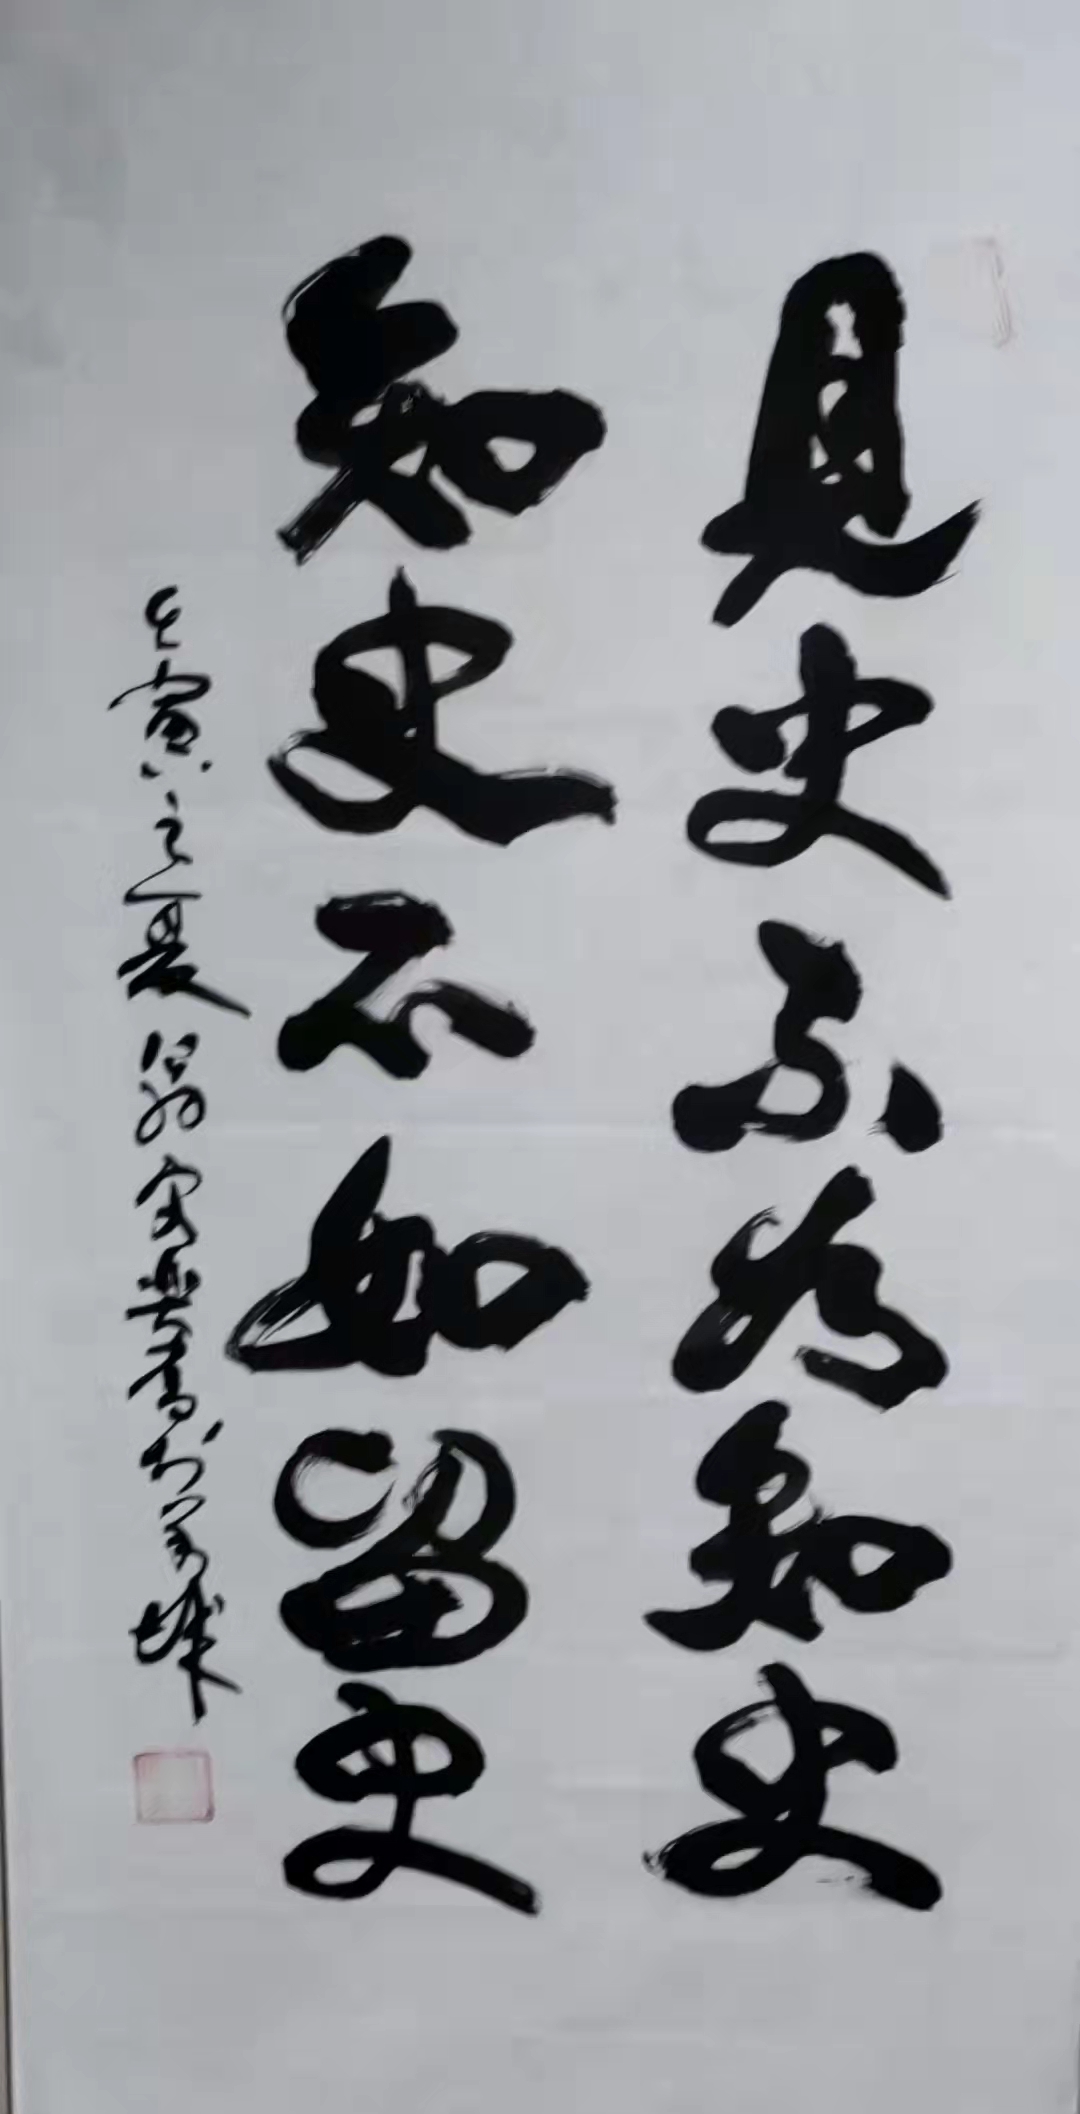 見史不如知史
知史不如留史
壬寅之夏